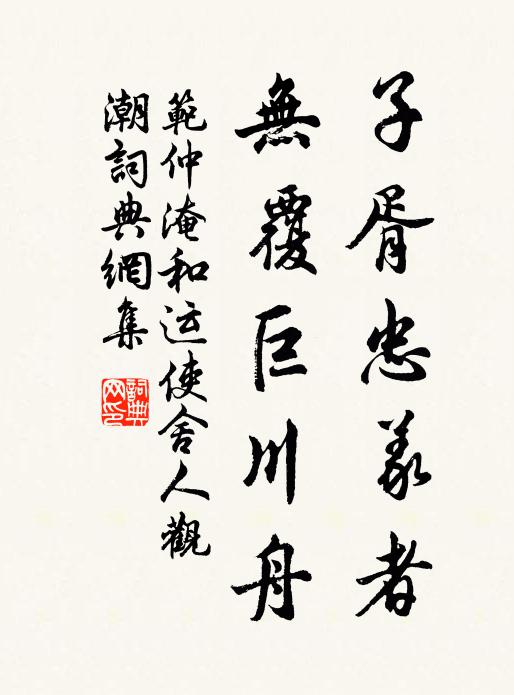 子胥忠義者
無覆巨川舟
範仲淹和运使舍人觀
潮詞典網集
詞典網印